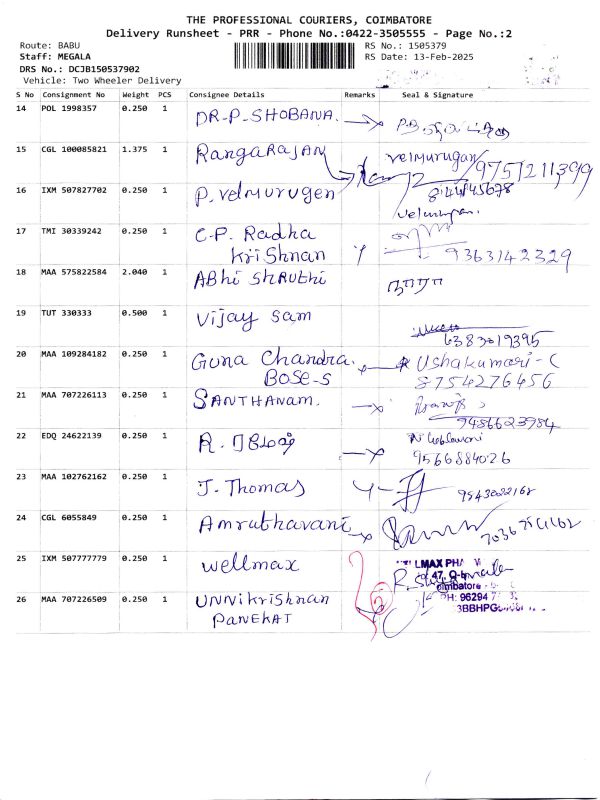 THE PROFESSIONAL COURIERS, COIMBATORE
Delivery Runsheet - PRR - Phone No.:0422-3505555 - Page No.:2
Route: BABU
RS No.: 1505379
Staff: MEGALA
RS Date: 13-Feb-2025
DRS No.: DCJB150537902
Vehicle: Two Wheeler Delivery
S No Consignment No Weight PCS Consignee Details Remarks Seal & Signature
14 POL 1998357 0.250 1 DR-P-SHOBANA.
15 CGL 100085821 1.375 1 RangaRAJAN Velmurugan 9751211399
16 IXM 507827702 0.250 1 P. Velmurugen 8144145678
Velmurugan.
17 TMI 30339242 0.250 1 C.P. Radha
Krishnan 9363142329
18 MAA 575822584 2.040 1 ABhi ShRuthi நாரா
19 TUT 330333 0.500 1 Vijay Sam
6383019395
20 MAA 109284182 0.250 1 Guna Chandra. Ushakumari-C
BOSE-S 8754276456
21 MAA 707226113 0.250 1 SANTHANAM.
9486623984
22 EDQ 24622139 0.250 1 R.
9566884026
23 MAA 102762162 0.250 1 J. Thomas 9543022162
24 CGL 6055849 0.250 1 Amruthavani
25 IXM 507777779 0.250 1 Wellmax LMAX PHA
47,
oimbatore
PH: 96294
26 MAA 707226509 0.250 1 UNNikrishnan
PANEKAT